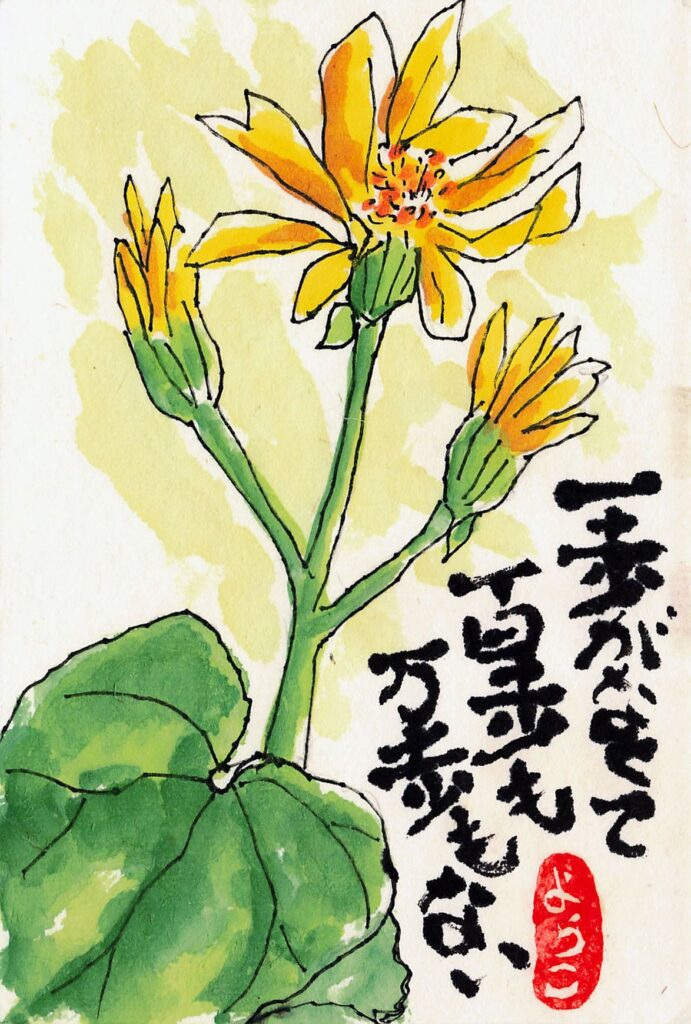 一歩がなくて
百歩も
万歩もない
ようこ